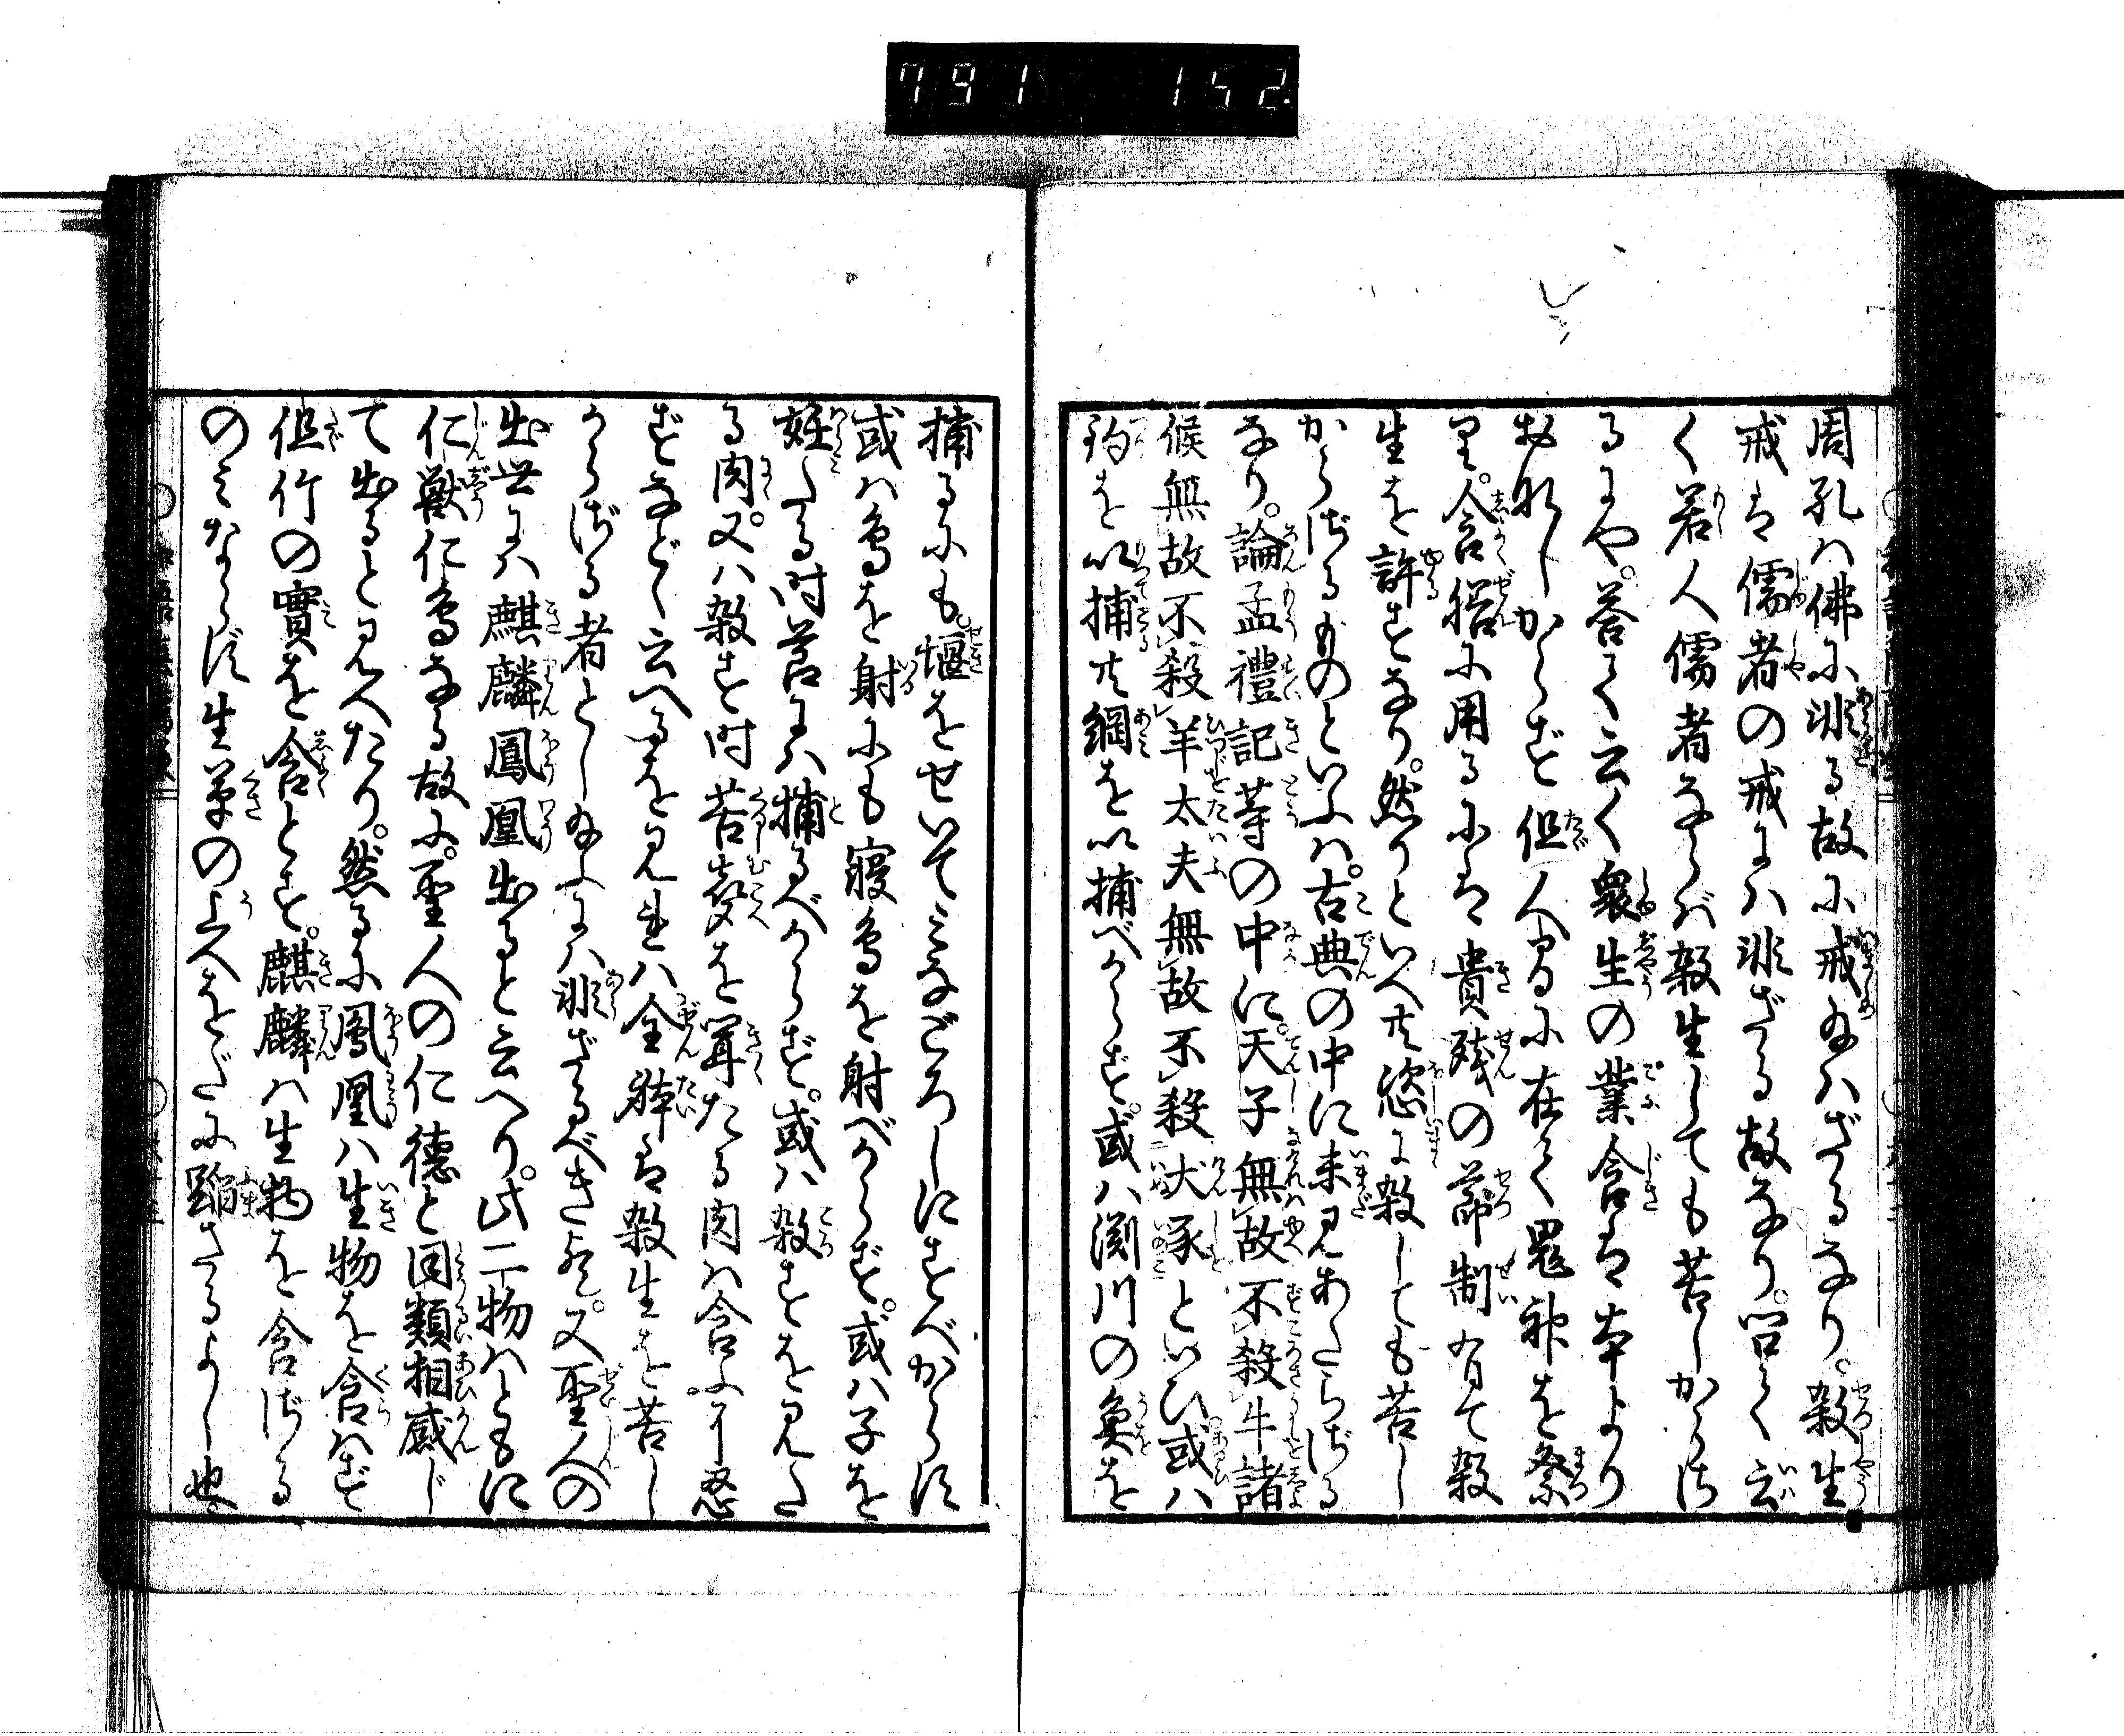 791 152
周孔ハ佛に非る故に戒給ハざるなり。殺生
戒は儒者の戒にハ非ざる故なり。問て云
く若人儒者ならバ殺生しても苦しからぬ
るにや。答て云く衆生の業食は本より
但人間に在て鬼神を祭
り。食膳に用るには貴賤の節制有て殺
生を許すなり。然りといへ共恣に殺しても苦し
からざるものといふハ。古典の中に未見あたらざる
なり。論孟禮記等の中に。天子無故不殺牛諸
候無故不殺羊太夫無故不殺犬豕といひ。或ハ
釣を以捕共網を以捕べからず。或ハ渕川の魚を
捕るにも。堰をせいてみなごろしにすべからず
或ハ鳥を射にも寝鳥を射べからず。或ハ子を
妊たる時節にハ捕るべからず。或ハ殺すを見た
る肉。又ハ殺す時苦聲を聞たる肉ハ食ふに忍
ずなどゝ云へるを見れハ全躰は殺生を苦し
からざる者とし給ふにハ非ざるべき歟。又聖人の
出世にハ麒麟鳳凰出ると云へり。此二物ハともに
仁獣仁鳥なる故に。聖人の仁徳と同類相感じ
て出ると見へたり。然るに鳳凰ハ生物を食ハず
但竹の實を食とす。麒麟ハ生物を食ざる
のミならず生草の上へをだに蹈ざるよし也